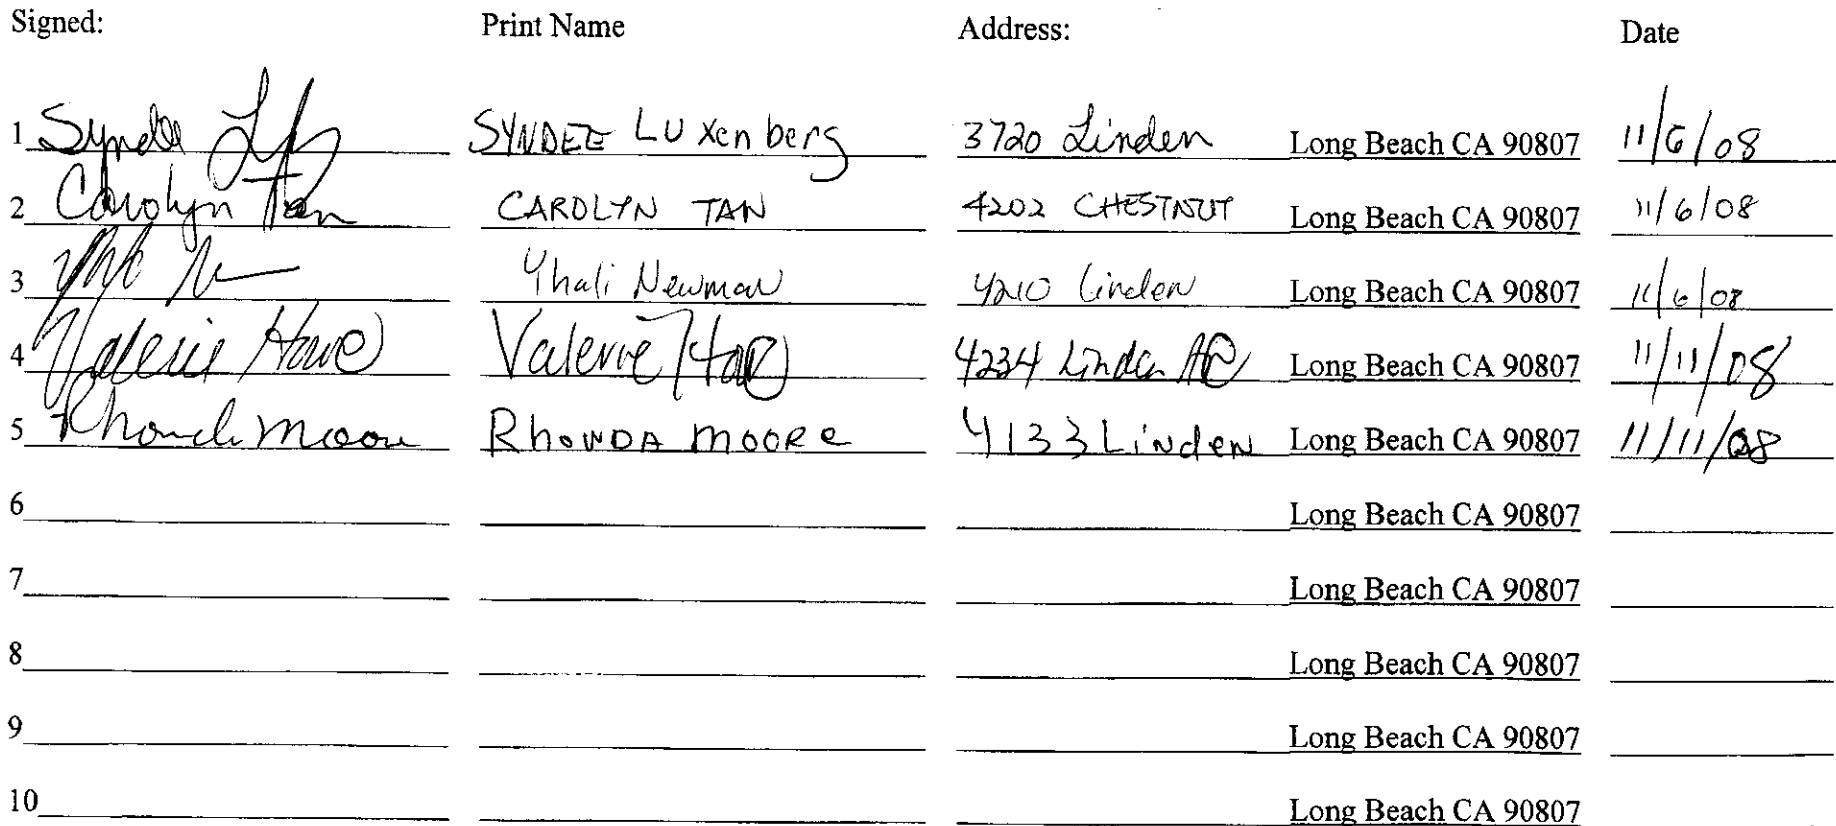 Signed: Print Name Address: Date
1 Syndee SYNDEE LUxenberg 3720 Linden Long Beach CA 90807 11/6/08
2 Carolyn Tan CAROLYN TAN 4202 CHESTNUT Long Beach CA 90807 11/6/08
3 Yhali Newman 4210 Linden Long Beach CA 90807 11/6/08
4 Valerie Howe Valerie Howe 4234 Linden Ave Long Beach CA 90807 11/11/08
5 Rhonda Moore RhONDA MOORe 4133 LiNdeN Long Beach CA 90807 11/11/08
6 Long Beach CA 90807
7 Long Beach CA 90807
8 Long Beach CA 90807
9 Long Beach CA 90807
10 Long Beach CA 90807